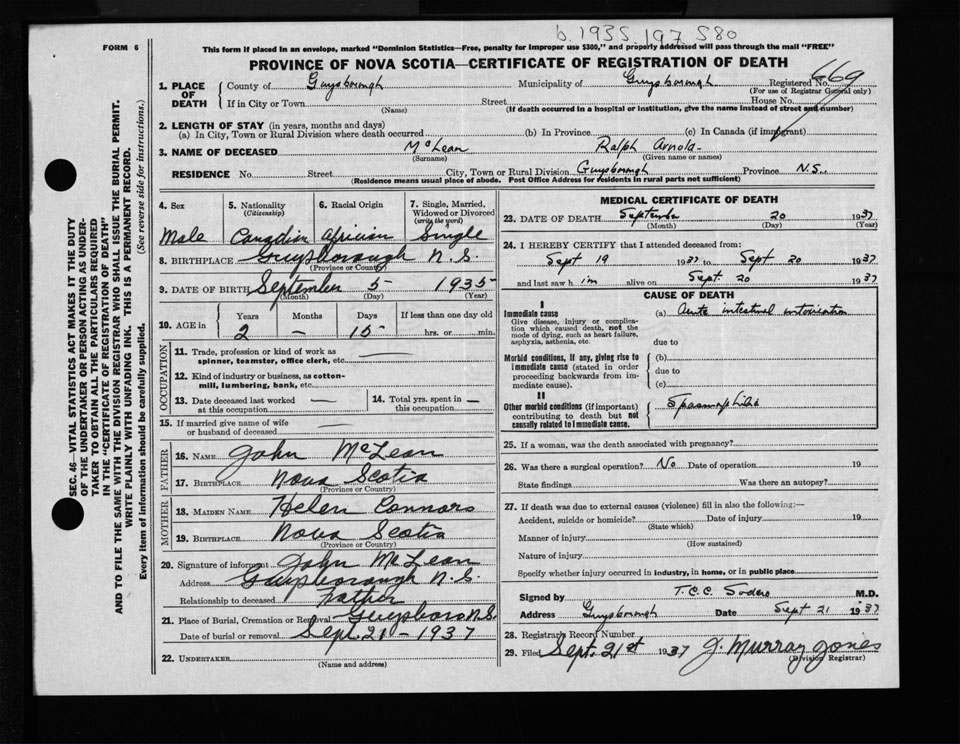 b. 1935. 197 580
FORM 6
This form if placed in an envelope, marked "Dominion Statistics—Free, penalty for improper use $300," and properly addressed will pass through the mail "FREE"
PROVINCE OF NOVA SCOTIA—CERTIFICATE OF REGISTRATION OF DEATH
1. PLACE OF DEATH
County of Guysborough Municipality of Guysborough Registered No. 669
(For use of Registrar General only)
If in City or Town Street House No.
(Name) (If death occurred in a hospital or institution, give the name instead of street and number)
2. LENGTH OF STAY (in years, months and days)
(a) In City, Town or Rural Division where death occurred (b) In Province (c) In Canada (if immigrant)
3. NAME OF DECEASED McLean Ralph Arnold
(Surname) (Given name or names)
RESIDENCE No. Street City, Town or Rural Division Guysborough Province N.S.
(Residence means usual place of abode. Post Office Address for residents in rural parts not sufficient)
4. Sex 5. Nationality (Citizenship) 6. Racial Origin 7. Single, Married, Widowed or Divorced (write the word)
Male Canadian African Single
8. BIRTHPLACE Guysborough N.S.
(Province or Country)
9. DATE OF BIRTH September 5 1935
(Month) (Day) (Year)
10. AGE in Years Months Days If less than one day old
2 — 15 hrs. or min.
OCCUPATION
11. Trade, profession or kind of work as spinner, teamster, office clerk, etc. —
12. Kind of industry or business, as cotton-mill, lumbering, bank, etc. —
13. Date deceased last worked at this occupation — 14. Total yrs. spent in this occupation —
15. If married give name of wife or husband of deceased —
FATHER
16. NAME John McLean
17. BIRTHPLACE Nova Scotia
(Province or Country)
MOTHER
18. MAIDEN NAME Helen Connors
19. BIRTHPLACE Nova Scotia
(Province or Country)
20. Signature of informant John McLean
Address Guysborough N.S.
Relationship to deceased Father
21. Place of Burial, Cremation or Removal Guysboro N.S.
Date of burial or removal Sept. 21 – 1937
22. UNDERTAKER
(Name and address)
MEDICAL CERTIFICATE OF DEATH
23. DATE OF DEATH September 20 1937
(Month) (Day) (Year)
24. I HEREBY CERTIFY that I attended deceased from:
Sept 19 1937 to Sept 20 1937
and last saw h im alive on Sept. 20 1937
CAUSE OF DEATH
I
Immediate cause
Give disease, injury or complication which caused death, not the mode of dying, such as heart failure, asphyxia, asthenia, etc.
(a) Acute intestinal intoxication
due to
Morbid conditions, if any, giving rise to immediate cause (stated in order proceeding backwards from immediate cause).
(b)
due to
(c)
II
Other morbid conditions (if important) contributing to death but not causally related to immediate cause.
Spasmophilia
25. If a woman, was the death associated with pregnancy?
26. Was there a surgical operation? No Date of operation 19
State findings Was there an autopsy?
27. If death was due to external causes (violence) fill in also the following:—
Accident, suicide or homicide? Date of injury 19
(State which)
Manner of injury
(How sustained)
Nature of injury
Specify whether injury occurred in industry, in home, or in public place
Signed by T.C.C. Sodero M.D.
Address Guysborough Date Sept 21 1937
28. Registrar's Record Number
29. Filed Sept. 21st 1937 J. Murray Jones
(Division Registrar)
SEC. 46—VITAL STATISTICS ACT MAKES IT THE DUTY
OF THE UNDERTAKER OR PERSON ACTING AS UNDER-
TAKER TO OBTAIN ALL THE PARTICULARS REQUIRED
IN THE "CERTIFICATE OF REGISTRATION OF DEATH"
AND TO FILE THE SAME WITH THE DIVISION REGISTRAR WHO SHALL ISSUE THE BURIAL PERMIT.
WRITE PLAINLY WITH UNFADING INK. THIS IS A PERMANENT RECORD.
Every item of information should be carefully supplied. (See reverse side for instructions.)